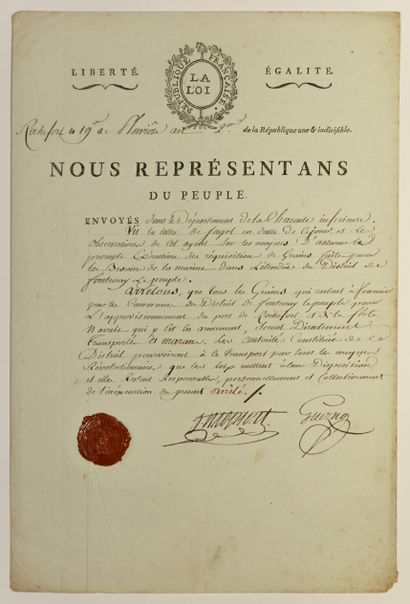 LIBERTÉ.
ÉGALITE.
RÉPUBLIQUE FRANÇAISE
LA
LOI
Rochefort le 19e de Pluviôse an 2e de la République une & indivisible.
NOUS REPRÉSENTANS
DU PEUPLE
ENVOYÉS dans le département de la Charente inférieure.
Vu la lettre de fagot en datte de ce jour, et Les
observations de Cet agent Sur les moyens D'assurer la
prompte Exécution des réquisition de Grains faite pour
les Besoin de la marine dans L'étendue du District de
fontenay Le peuple.
Arrêtons, que tous les Grains qui restent a fournir
par les Communes du District de fontenay le peuple pour
L'approvisionnement du port de Rochefort et de la flote
Navale qui y est en armement, Seront Directement
transportés a marans. Les Constituée de Ce
District pourvoiront à le transport par tous les moyens
Révolutionnaire que les Loix mettent à leur Disposition
et elle Seront Responsable, personnellement et Collectivement
de l'inexécution du présent arrêté.
Guezno